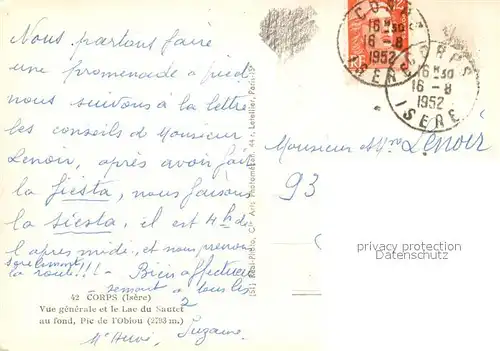 Nous partons faire
une promenade à pied
nous suivons à la lettre
les conseils de Monsieur
Lenoir, après avoir fait
la fiesta, nous faisons
la siesta, il est 4h de
l'après midi, et nous prenons
la route!!! - Bien affectueu
sement à tous les
2
Suzanne
Mme Hervé,
42 CORPS (Isère)
Vue générale et le Lac du Sautet
au fond, Pic de l'Obiou (2793 m.)
Real-Photo, C.A.P.
CORPS
16 H 30
16 - 8
1952
ISERE
CORPS
16 H 30
16 - 8
1952
ISERE
Monsieur Lenoir
93
privacy protection
Datenschutz